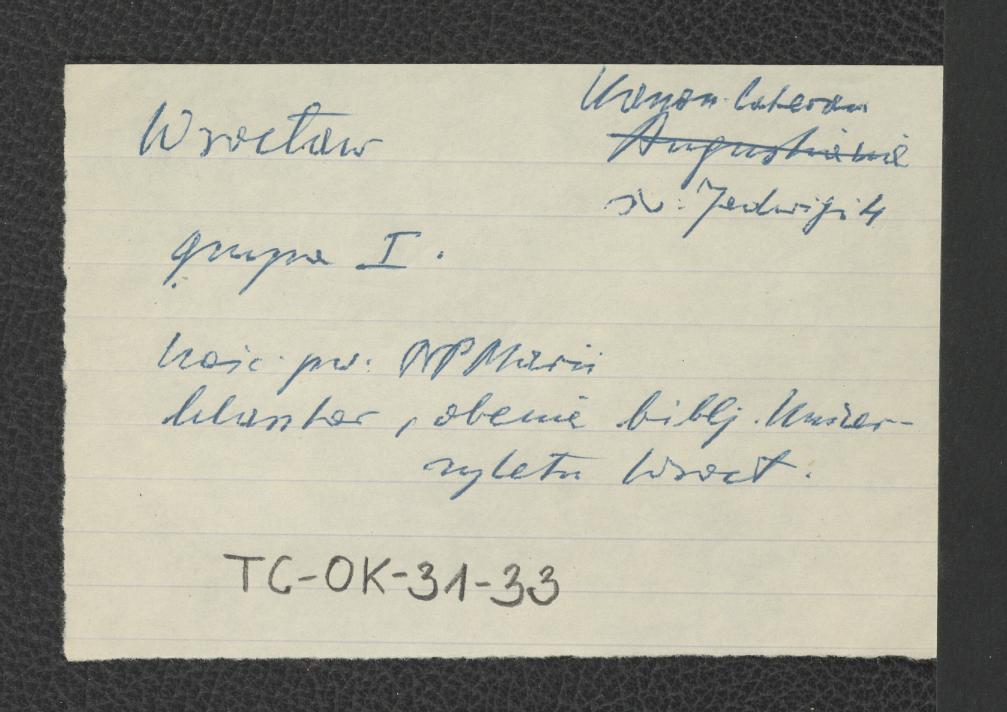 Wrocław
Kanon. Lateran
Augustianie
św. Jadwigi 4
grupa I.
kośc. pw. NPMarii
klasztor, obecnie biblj. Uniwer-
sytetu Wrocł.
TC-OK-31-33